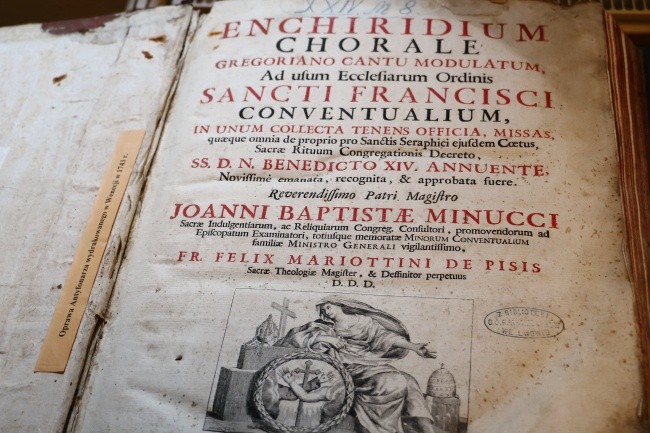 XXIV n 8
ENCHIRIDIUM
CHORALE
GREGORIANO CANTU MODULATUM,
Ad usum Ecclesiarum Ordinis
SANCTI FRANCISCI
CONVENTUALIUM,
IN UNUM COLLECTA TENENS OFFICIA, MISSAS,
quæque omnia de proprio pro Sanctis Seraphici ejusdem Cœtus,
Sacræ Rituum Congregationis Decreto,
SS. D. N. BENEDICTO XIV. ANNUENTE,
Novissimè emanata, recognita, & approbata fuere.
Reverendissimo Patri Magistro
JOANNI BAPTISTÆ MINUCCI
Sacræ Indulgentiarum, ac Reliquiarum Congreg. Consultori, promovendorum ad
Episcopatum Examinatori, totiusque memoratæ MINORUM CONVENTUALIUM
familiæ MINISTRO GENERALI vigilantissimo,
FR. FELIX MARIOTTINI DE PISIS
Sacræ Theologiæ Magister, & Deffinitor perpetuus
D. D. D.
Z BIBLIOTEKI
WE LWOWIE
Oprawa Antyfonarza wydrukowanego w Wenecji w 1743 r.